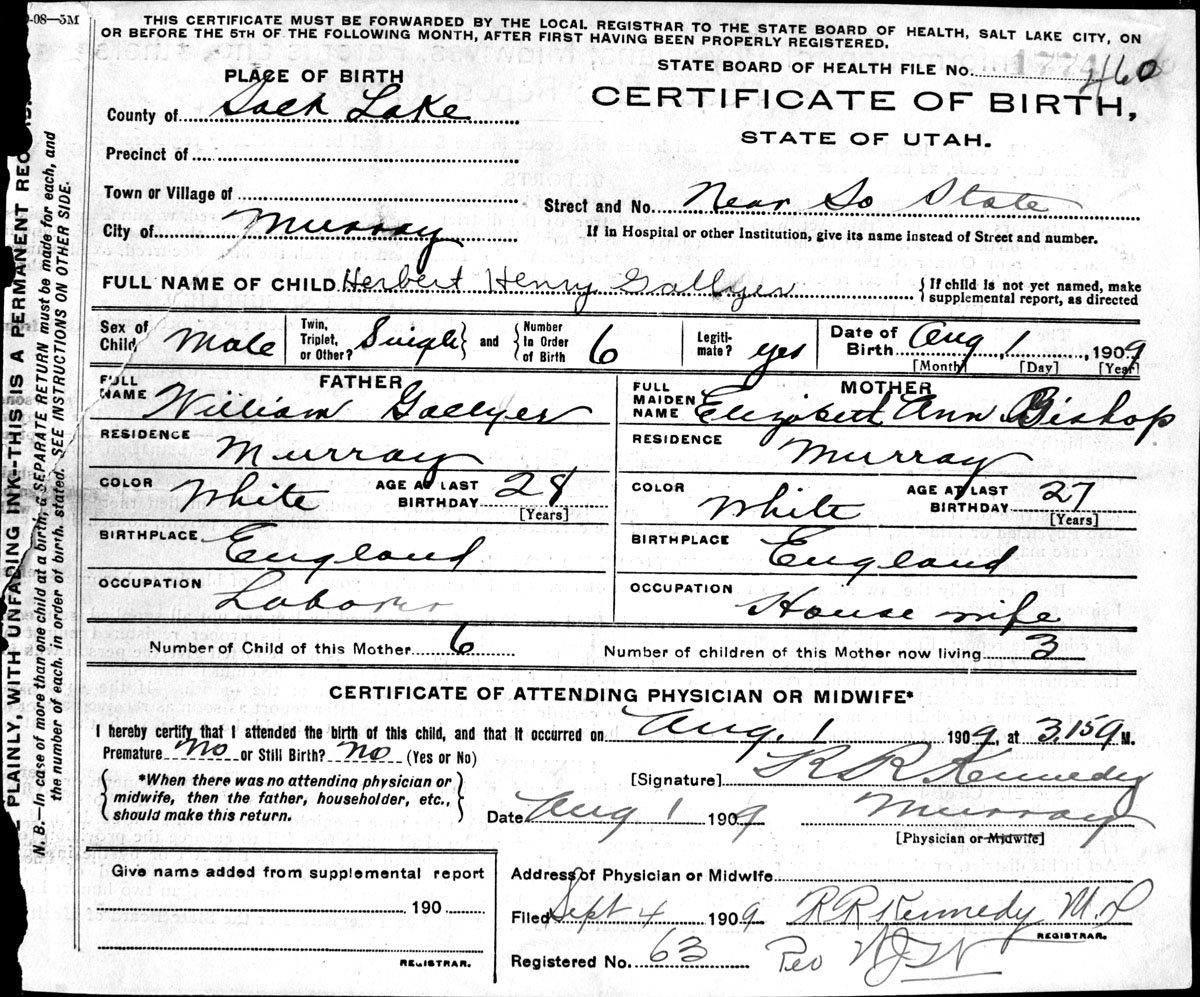 -08—5M
THIS CERTIFICATE MUST BE FORWARDED BY THE LOCAL REGISTRAR TO THE STATE BOARD OF HEALTH, SALT LAKE CITY, ON
OR BEFORE THE 5TH OF THE FOLLOWING MONTH, AFTER FIRST HAVING BEEN PROPERLY REGISTERED.
STATE BOARD OF HEALTH FILE No. 460
PLACE OF BIRTH
CERTIFICATE OF BIRTH,
STATE OF UTAH.
County of Lake
Precinct of
Town or Village of
Street and No. Near So State
City of Murray
If in Hospital or other Institution, give its name instead of Street and number.
FULL NAME OF CHILD Herbert Henry Gallyer
{If child is not yet named, make
supplemental report, as directed
Sex of Child Male
Twin, Triplet, or Other? Single} and {Number In Order of Birth 6
Legiti-mate? yes
Date of Birth Aug 1, 1909
[Month] [Day] [Year]
FATHER
FULL NAME William Gallyer
MOTHER
FULL MAIDEN NAME Elizabeth Ann Bishop
RESIDENCE Murray
RESIDENCE Murray
COLOR White AGE AT LAST BIRTHDAY 28 [Years]
COLOR White AGE AT LAST BIRTHDAY 27 [Years]
BIRTHPLACE England
BIRTHPLACE England
OCCUPATION Laborer
OCCUPATION House wife
Number of Child of this Mother 6
Number of children of this Mother now living 3
CERTIFICATE OF ATTENDING PHYSICIAN OR MIDWIFE*
I hereby certify that I attended the birth of this child, and that it occurred on Aug. 1 1909, at 3.15 a M.
Premature no or Still Birth? no (Yes or No)
{*When there was no attending physician or
midwife, then the father, householder, etc.,
should make this return.}
[Signature] R R Kennedy
Date Aug 1 1909 Murray
[Physician or Midwife]
Give name added from supplemental report
190
REGISTRAR.
Address of Physician or Midwife
Filed Sept 4 1909 R R Kennedy M.D
REGISTRAR.
Registered No. 63 Per
PLAINLY, WITH UNFADING INK—THIS IS A PERMANENT
N. B.—In case of more than one child at a birth, a SEPARATE RETURN must be made for each, and
the number of each, in order of birth, stated. SEE INSTRUCTIONS ON OTHER SIDE.